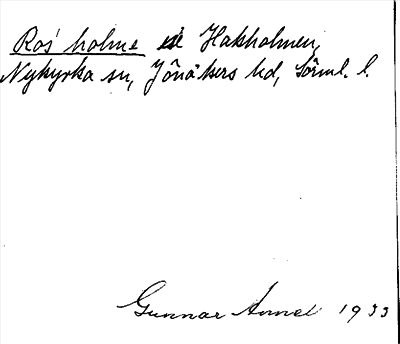 Ros holme se Hakholmen,
Nykyrka sn, Jönåkers hd, Sörml. l.
Gunnar Annel 1933